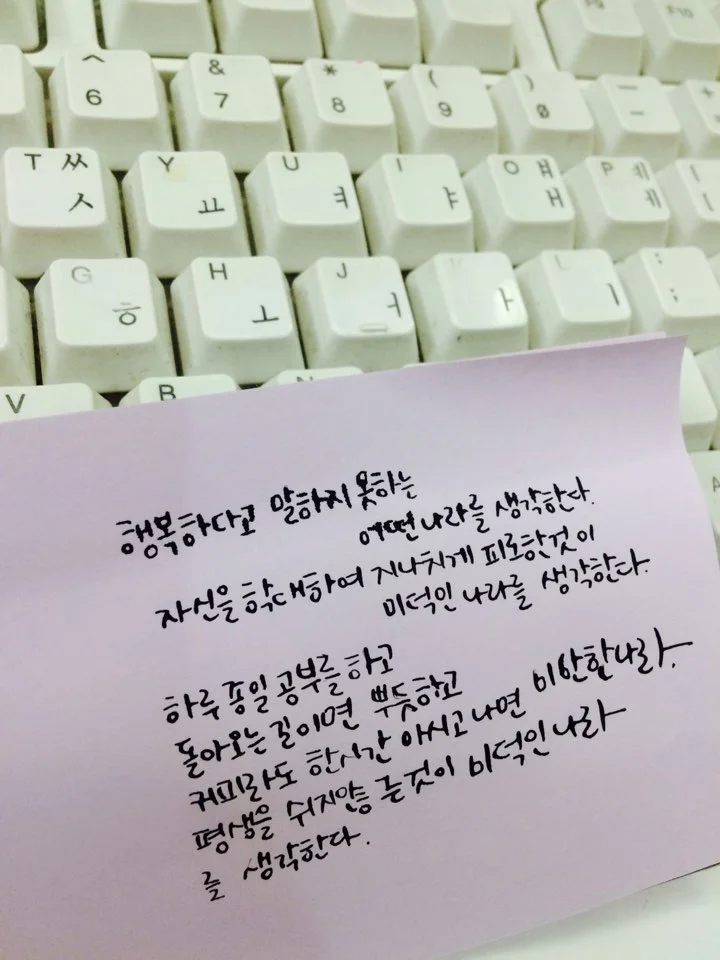 F9 F10
^ 6 & 7 * 8 ( 9 ) 0 — - +
T ㅆ ㅅ Y ㅛ U ㅕ I ㅑ O ㅒ ㅐ P ㅖ ㅔ { [
G ㅎ H ㅗ J ㅓ K ㅏ L ㅣ : ;
V B N
행복하다고 말하지 못하는
어떤 나라를 생각한다.
자신을 학대하여 지나치게 피로한것이
미덕인 나라를 생각한다.
하루 종일 공부를 하고
돌아오는 길이면 뿌듯하고
커피라도 한시간 마시고 나면 미안할 나라.
평생을 쉬지않는 것이 미덕인 나라
를 생각한다.